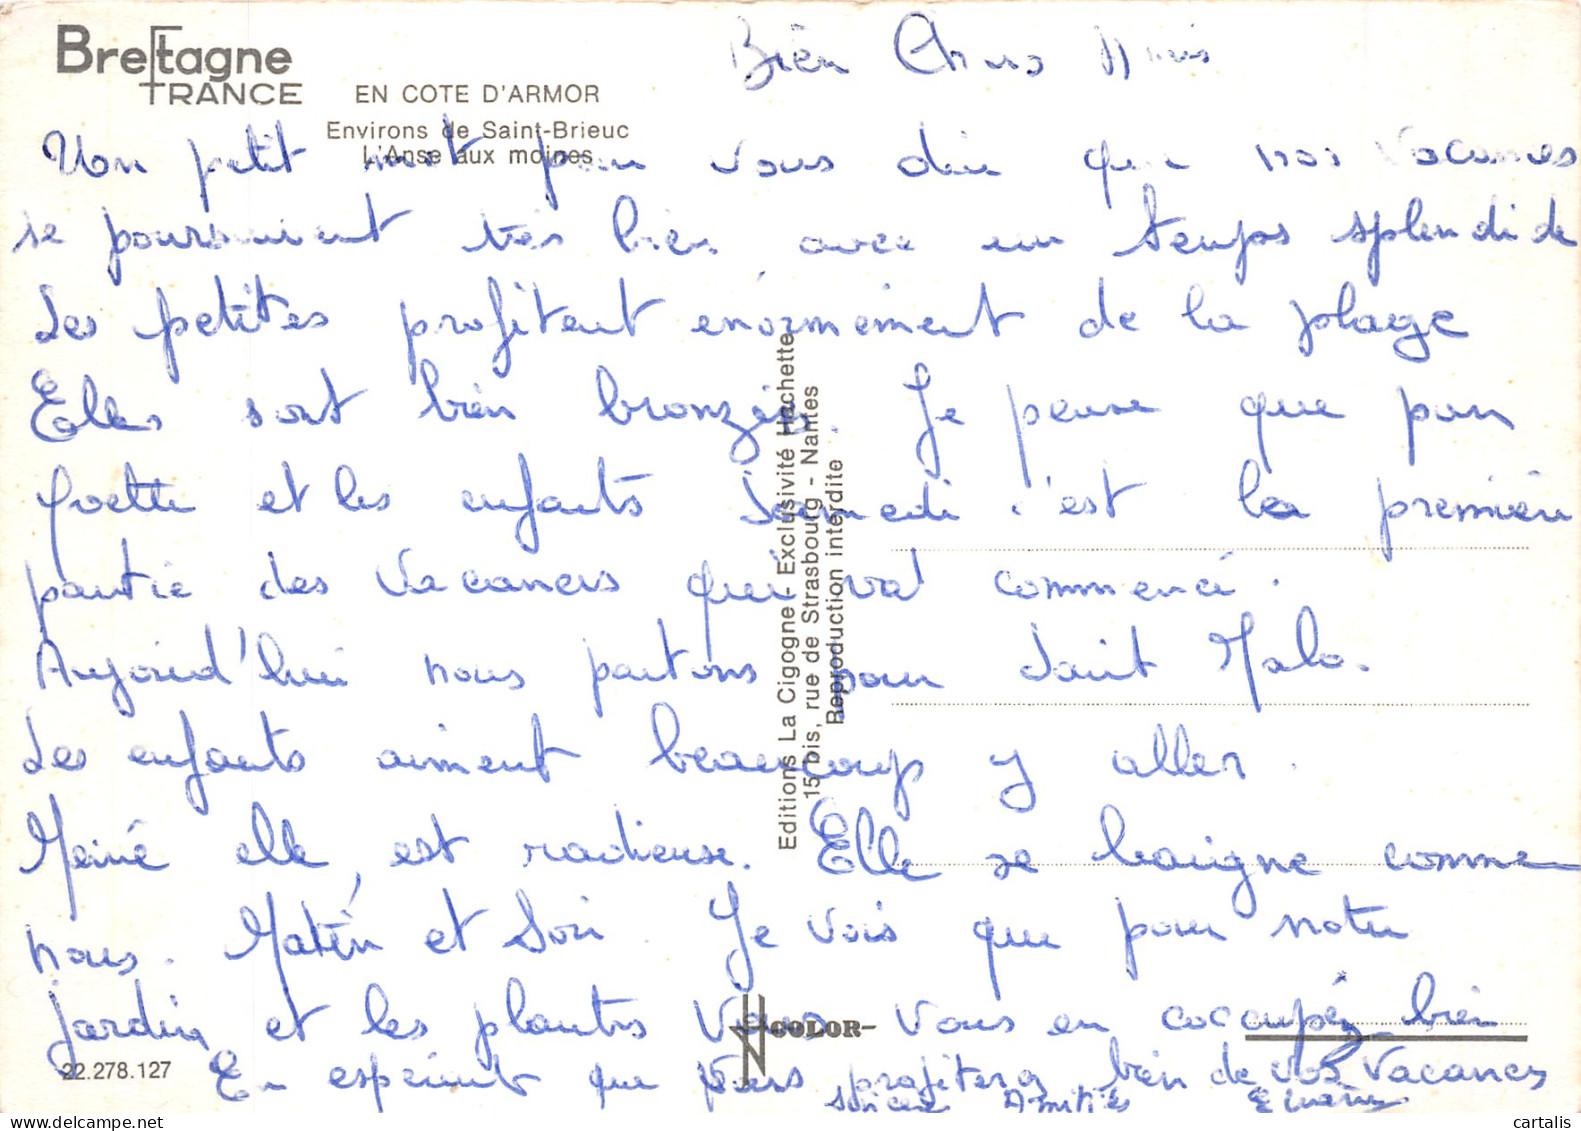 Bretagne
FRANCE
EN COTE D'ARMOR
Environs de Saint-Brieuc
L'Anse aux moines
Bien Chers Amis
Un petit mot pour vous dire que nos vacances
se poursuivent très bien avec un temps splendide
Les petites profitent énormément de la plage
Elles sont bien bronzées. Je pense que pour
Yvette et les enfants Samedi c'est la première
partie des vacances qui va commencé.
Aujourd'hui nous partons pour Saint Malo.
Les enfants aiment beaucoup y aller.
elle est radieuse. Elle se baigne comme
nous. Matin et Soir. Je vois que pour notre
jardin et les plantes Vous vous en occupéz bien
En espérant que Vous profiterez bien de vos Vacances
Sincère Amitiés
Editions La Cigogne - Exclusivité Hachette
15 bis, rue de Strasbourg - Nantes
Reproduction interdite
COLOR
22.278.127
cartalis